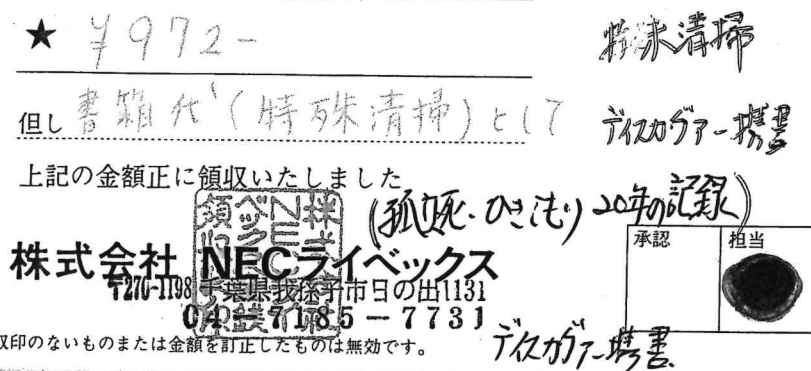 ★ ¥972-
特殊清掃
但し 書籍代(特殊清掃)として
ディスカヴァー携書
上記の金額正に領収いたしました
(孤独死・ひきこもり 20年の記録)
承認 担当
株式会社 NECライベックス
〒270-1198 千葉県我孫子市日の出1131
04-7185-7731
収印のないものまたは金額を訂正したものは無効です。
ディスカヴァー携書